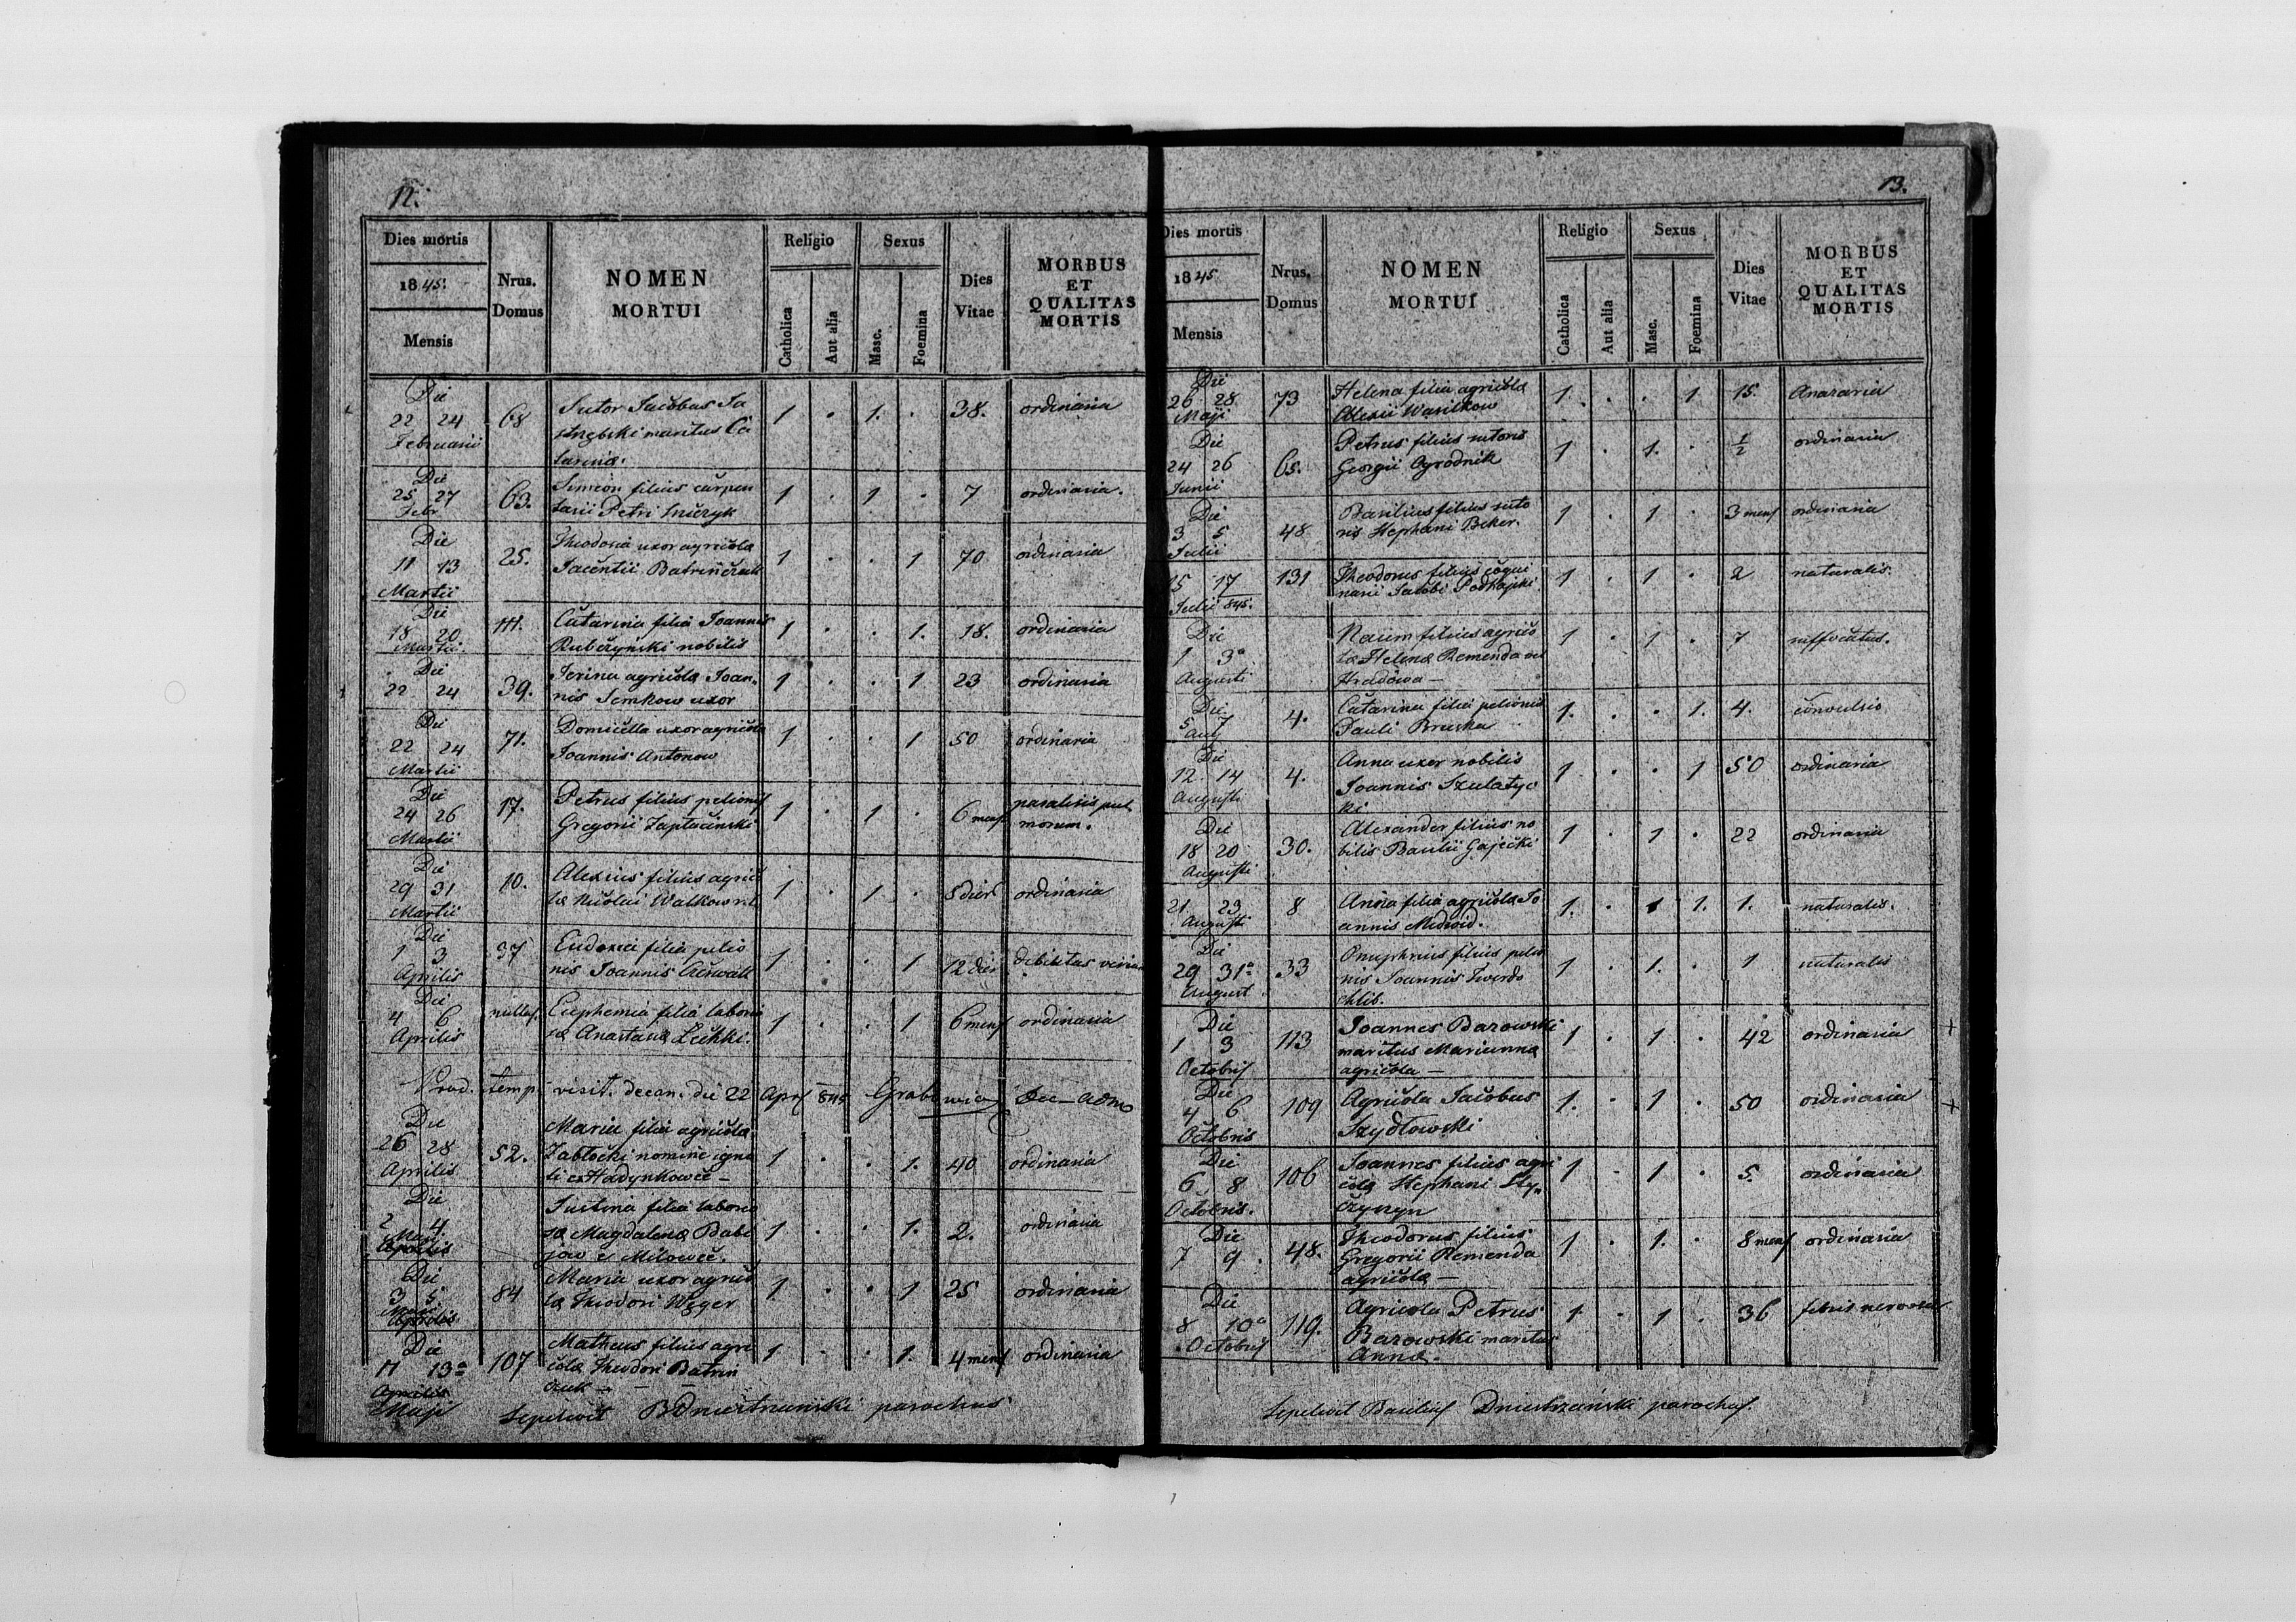 12.
Dies mortis
1845.
Mensis
Nrus. Domus
NOMEN MORTUI
Religio
Catholica
Aut alia
Sexus
Masc.
Foemina
Dies Vitae
MORBUS ET QUALITAS MORTIS
Die
22 24
Februarii
68
Sutor Jacobus Ja
strzębski maritus Ca
tarinæ.
1 . 1. . 38. ordinaria
Die
25 27
Febr
63.
Simeon filius carpen
tarii Petri
1 . 1 . 7 ordinaria.
Die
11 13
Martii
25.
Theodosia uxor agricolæ
Jacentii Batrińczuk
1 . . 1 70 ordinaria
Die
18 20.
Martii.
111.
Catarina filia Joannis
Rubczyński nobilis
1 . . 1. 18. ordinaria
Die
22 24
39.
Irina agricolæ Joan-
nis Semkow uxor
1 . . 1 23 ordinaria
Die
22 24
Martii
71.
Domicella uxor agricolæ
Joannis Antonow
1 . . 1 50 ordinaria
Die
24 26
Martii
17.
Petrus filius pelionis
Gregorii Zaptocinski
1 . 1 . 6 mens paralisis pul
monum.
Die
29 31
Martii
10.
Alexius filius agrico
læ Nicolai
1 . 1 . 5 dies ordinaria
Die
1 3
Aprilis
37
Eudoxia filia pelio
nis Joannis
1 . . 1 12 dies debilitas
Die
4 6
Aprilis
nullus.
Euphemia filia laborio
sæ Anastasiæ
1 . . 1 6 mens ordinaria
temp. visit. decan. die 22 Apr 845
Die
26 28
Aprilis
52.
Maria filia agricolæ
Zabłocki nomine igna
ti ex Hadynkowce –
1 . . 1. 40 ordinaria
Die
2 4
Maji
Aprilis
Justina filia laborio
sæ Magdalenæ Babi
jow e Miłowce.
1 . . 1. 2. ordinaria
Die
3 5
Maji
Aprilis
84
Maria uxor agrico
læ Theodori Węger
1 . . 1 25 ordinaria
Die
11 13a
Aprilis
Maji
107
Matheus filius agri
colæ Theodori Batrin
czuk –
1 . . 1. 4 mens ordinaria
Sepelivit B Dniestrzański parochus
13.
Dies mortis
1845.
Mensis
Nrus. Domus
NOMEN MORTUI
Religio
Catholica
Aut alia
Sexus
Masc.
Foemina
Dies Vitae
MORBUS ET QUALITAS MORTIS
Die
26 28
Maji
73
Helena filia agricolæ
Alexii Wasilkow
1. . . 1 15. Anazaria
Die
24 26
Junii
65.
Petrus filius sutoris
Georgii Ogrodnik
1 . 1. . 1/2 ordinaria
Die
3 5
Julii
48
Basilius filius suto
ris Stephani Beker.
1 . 1 . 3 mens ordinaria
15 17
Julii 845.
131
Theodorus filius coqui
narii Jacobi Podhajski
1 . 1 . 2 naturalis.
Die
1 3a
Augusti
Naum filius agrico
læ Helenæ Remenda vel
Hradowa –
1 . 1 . 7 suffocatus.
Die
5 7
Aug
4.
Catarina filia pelionis
Pauli Bruska
1. . . 1. 4. convulsio
Die
12 14
Augusti
4.
Anna uxor nobilis
Joannis Szulatyc
ki
1 . . 1 50 ordinaria
Die
18 20
Augusti
30.
Alexander filius no
bilis Basilii Gajecki
1 . 1 . 22 ordinaria
21 23
Augusti
8
Anna filia agricolæ Jo
annis Medwid.
1. . 1 1. 1. naturalis.
Die
29 31a
August
33
Onuphrius filius pelio
nis Joannis Twerdo
chlib.
1 . 1. . 1 naturalis
Die
1 3
Octobris
113
Joannes Barowski
maritus Mariannæ
agricola –
1 . 1 . 42 ordinaria
Die
4 6
Octobris
109
Agricola Jacobus
Szydłowski
1. . 1 . 50 ordinaria
Die
6 8
Octobris.
106
Joannes filius agri
colæ Stephani Sty-
czyszyn
1 . 1 . 5. ordinaria
Die
7 9.
48.
Theodorus filius
Gregorii Remenda
agricolæ –
1 . 1. . 8 mens ordinaria
Die
8 10a
Octobris
119.
Agricola Petrus
Barowski maritus
Annæ.
1 . 1 . 36 febris nervosa
Sepelivit Basilius Dniestrzański parochus.